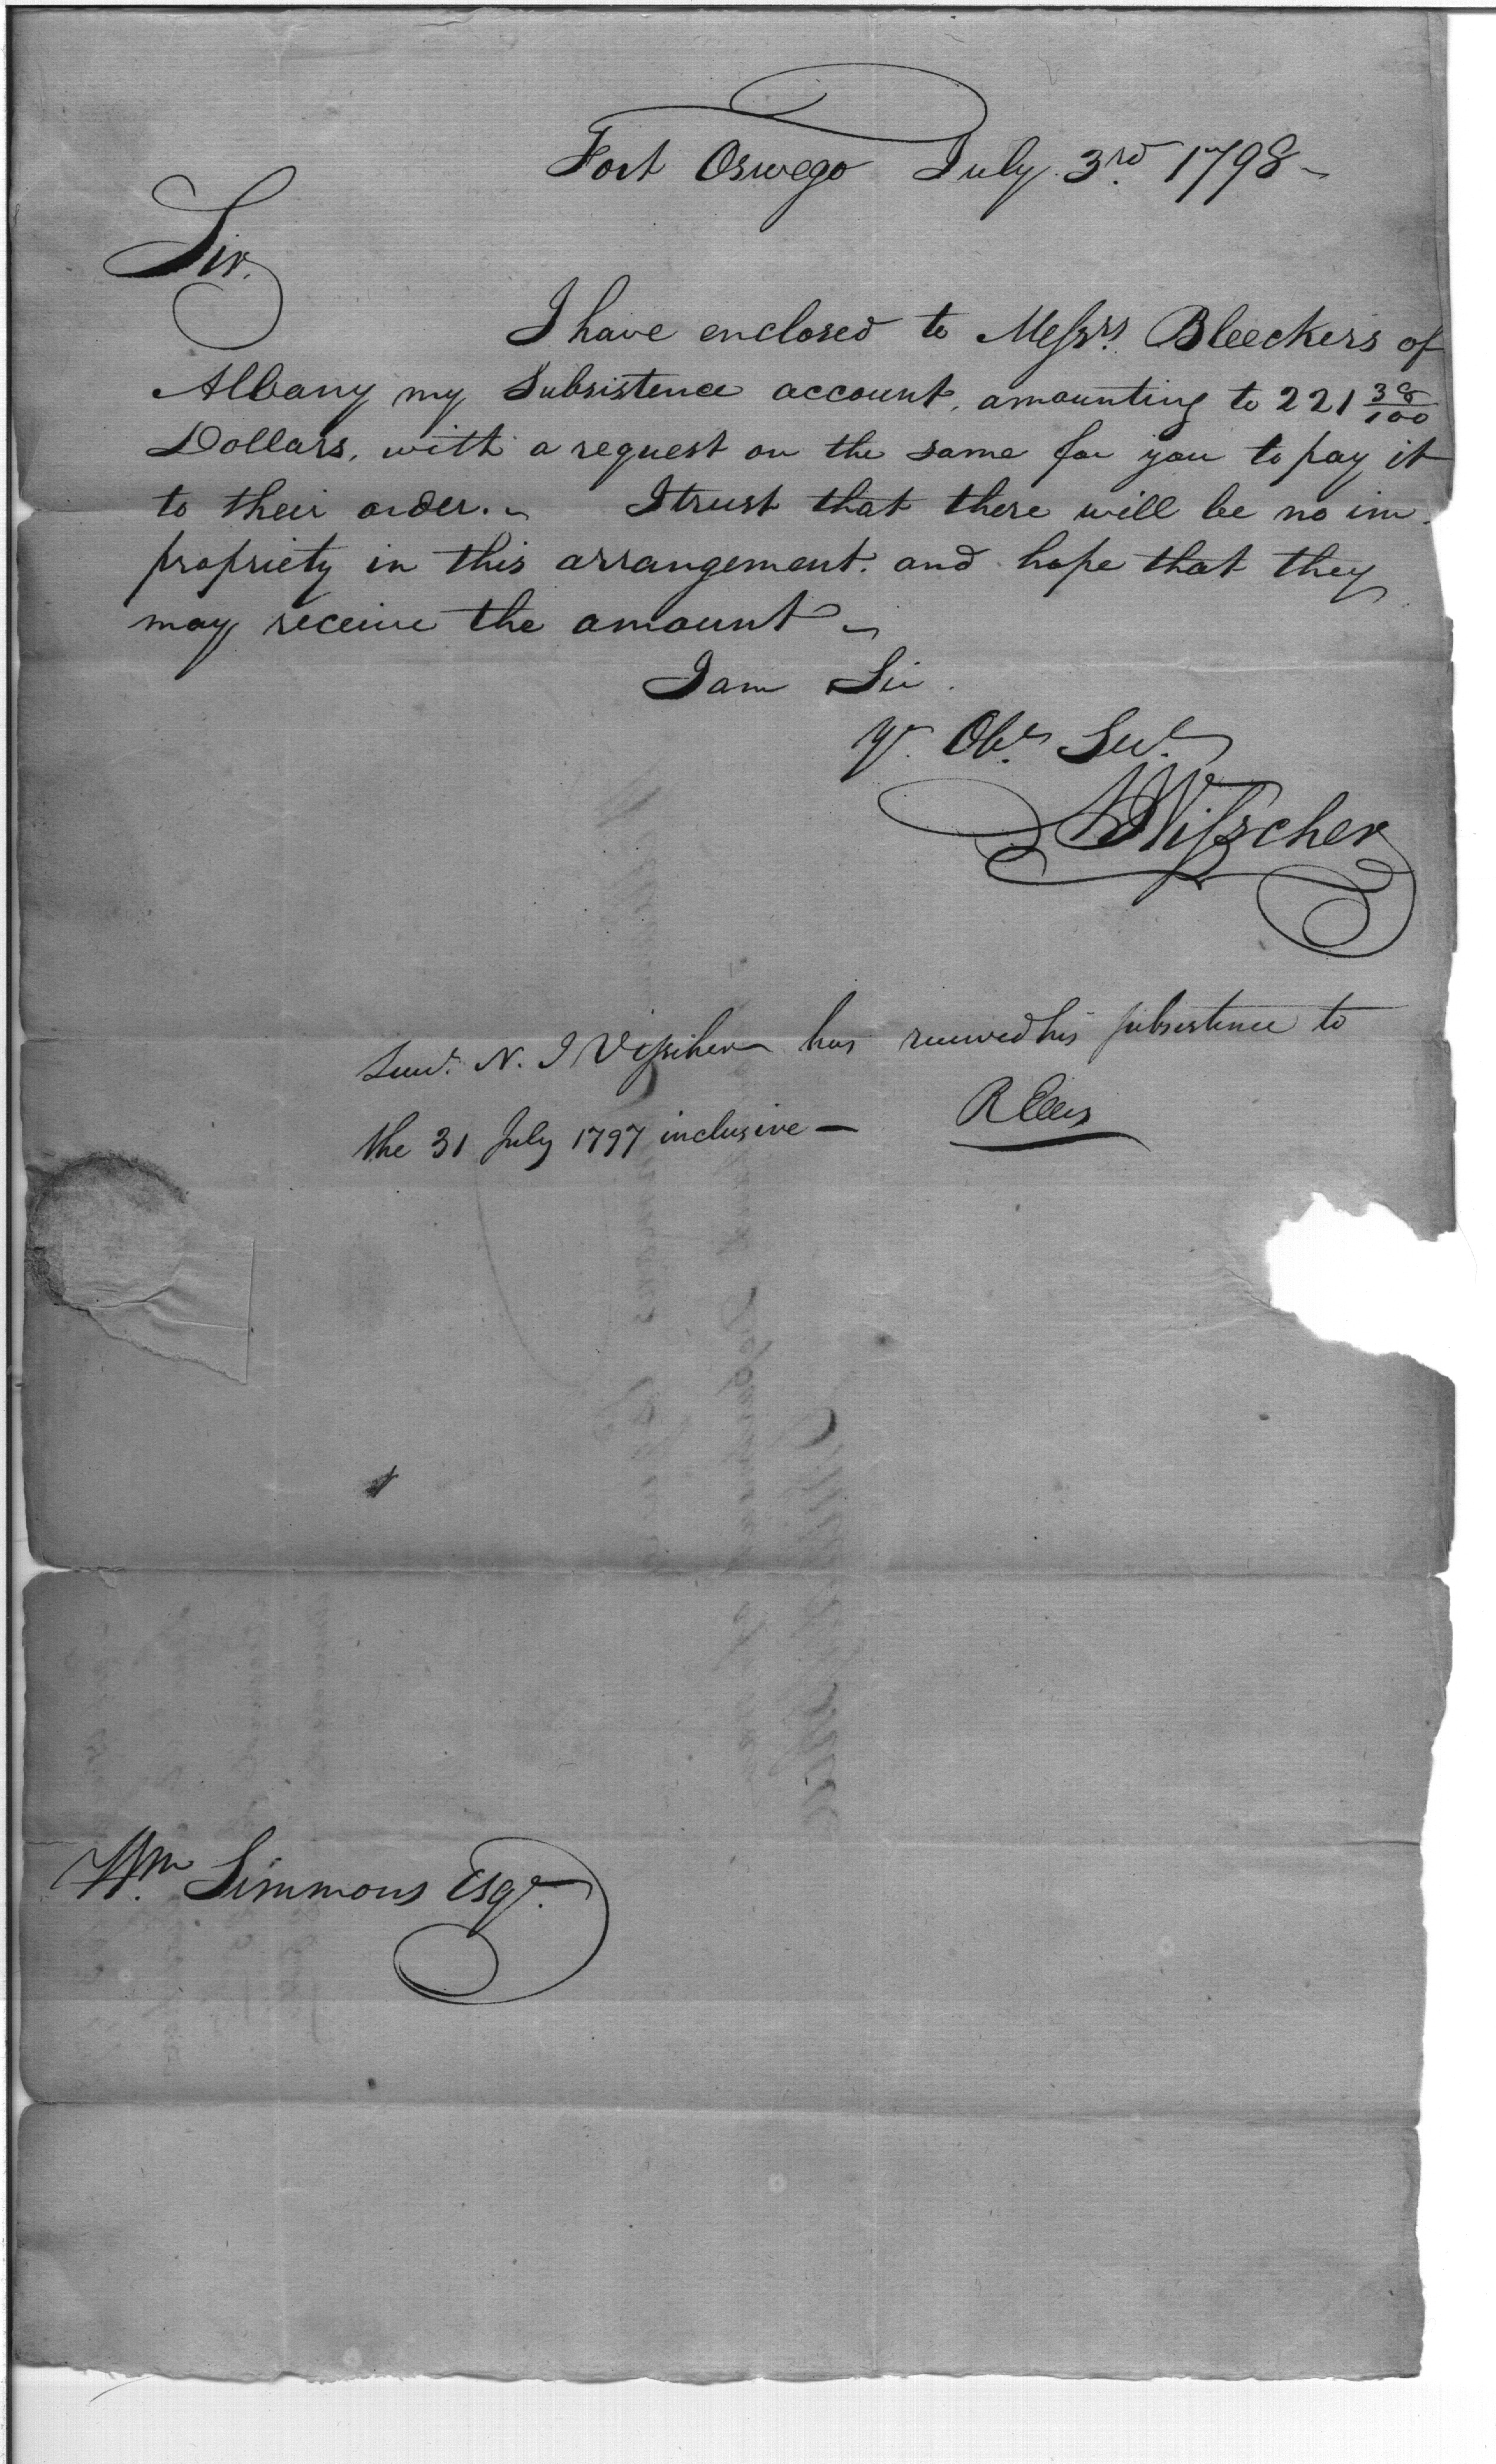 Fort Oswego July 3rd 1798
Sir.
I have enclosed to Messrs. Bleeckers of
Albany my Subsistence account, amounting to 221 38/100
Dollars, with a request on the same for you to pay it
to their order. I trust that there will be no im-
propriety in this arrangement. and hope that they
may receive the amount
I am Sir.
Yr. Obt. Sert.
NVisscher
Lieut. N. J Visscher has received his subsistence to
the 31 July 1797 inclusive —
Wm. Simmons Esqr.